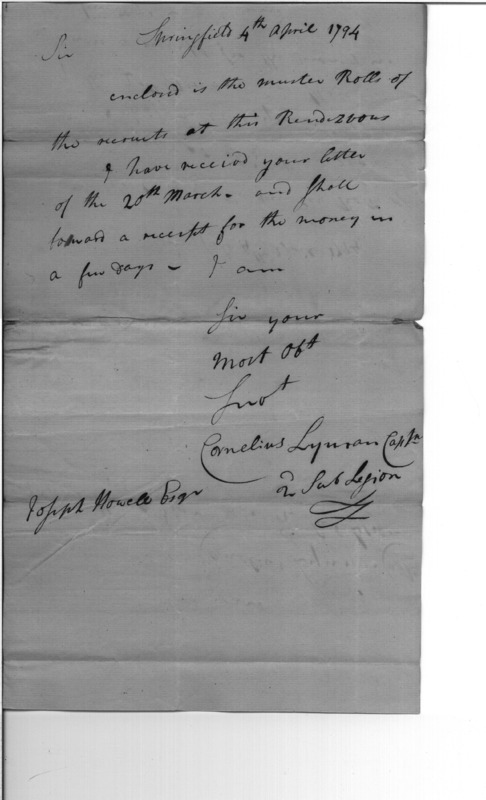 Springfield 4th April 1794
Sir
enclosed is the muster Rolls of
the recruits at this Rendezvous
I have received your letter
of the 20th March. and shall
forward a receipt for the money in
a few days - I am
Sir your
most Obt
Servt
Cornelius Lyman Captn
2 Sub Legion
Joseph Howell Esqr